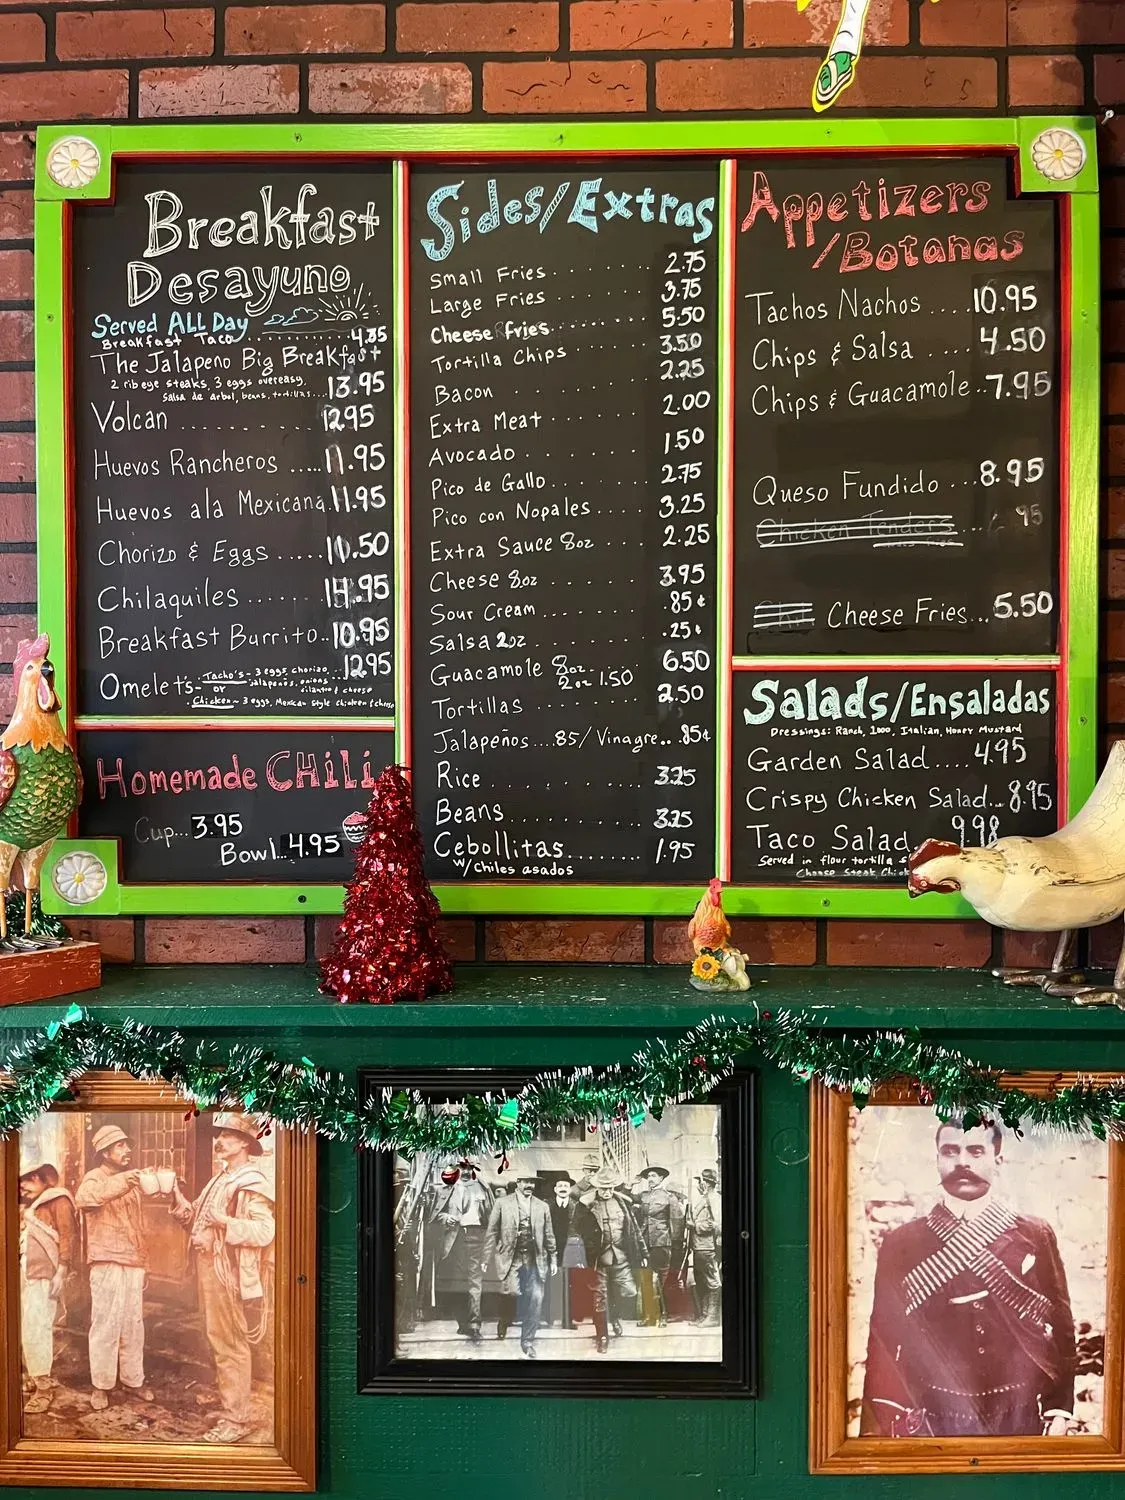 Breakfast
Desayuno
Served ALL Day
Breakfast Taco..............4.35
The Jalapeno Big Breakfast
2 ribeye steaks, 3 eggs overeasy,
salsa de arbol, beans, tortillas...13.95
Volcan ............12.95
Huevos Rancheros .....11.95
Huevos ala Mexicana.11.95
Chorizo & Eggs .....10.50
Chilaquiles .......14.95
Breakfast Burrito..10.95
Omelets- Tacho's - 3 eggs, chorizo ...12.95
or jalapeños, onions
cilantro & cheese
Chicken ~ 3 eggs, Mexican Style chicken & cheese
Homemade CHili
Cup...3.95
Bowl..4.95
Sides/Extras
Small Fries ....... 2.75
Large Fries ...... 3.75
Cheese fries....... 5.50
Tortilla Chips ..... 3.50
Bacon ........ 2.25
Extra Meat ....... 2.00
Avocado ........ 1.50
Pico de Gallo....... 2.75
Pico con Nopales .... 3.25
Extra Sauce 8oz ... 2.25
Cheese 8oz ...... 3.95
Sour Cream ...... .85¢
Salsa 2oz ....... .25¢
Guacamole 8oz.... 6.50
2oz 1.50
Tortillas ....... 2.50
Jalapeños....85/Vinagre...85¢
Rice ......... 3.25
Beans......... 3.25
Cebollitas....... 1.95
w/chiles asados
Appetizers
/Botanas
Tachos Nachos ....10.95
Chips & Salsa .... 4.50
Chips & Guacamole..7.95
Queso Fundido ...8.95
Chicken Tenders 95
Cheese Fries...5.50
Salads/Ensaladas
Dressings: Ranch, 1000, Italian, Honey Mustard
Garden Salad....4.95
Crispy Chicken Salad...8.95
Taco Salad. 9.98
Served in flour tortilla
Choose Steak,